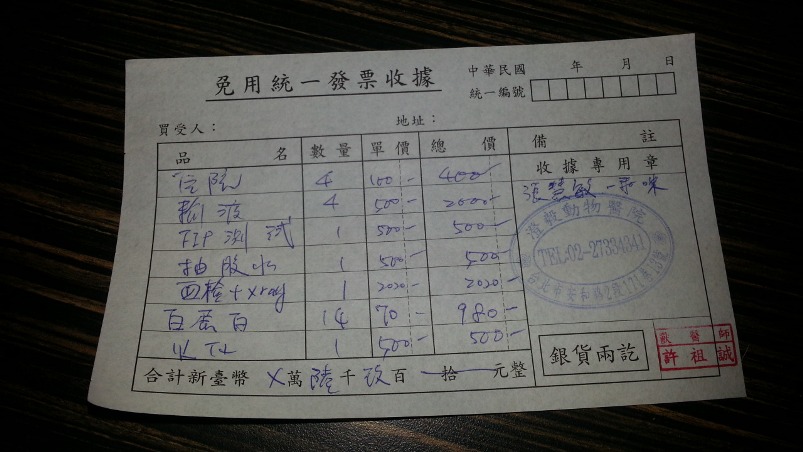 免用統一發票收據
中華民國 年 月 日
統一編號
買受人： 地址：
品名 數量 單價 總價 備註
收據專用章
住院 4 100- 400-
輸液 4 500- 2000-
FIP測試 1 500- 500-
抽腹水 1 500- 500
血檢+xray 1 2020- 2020-
白蛋白 14 70 980-
1 500- 500-
張慧敏-咪
動物醫院
TEL:02-27334341
合計新臺幣 X萬陸千玖百 拾 元整
銀貨兩訖
獸醫師
許祖誠